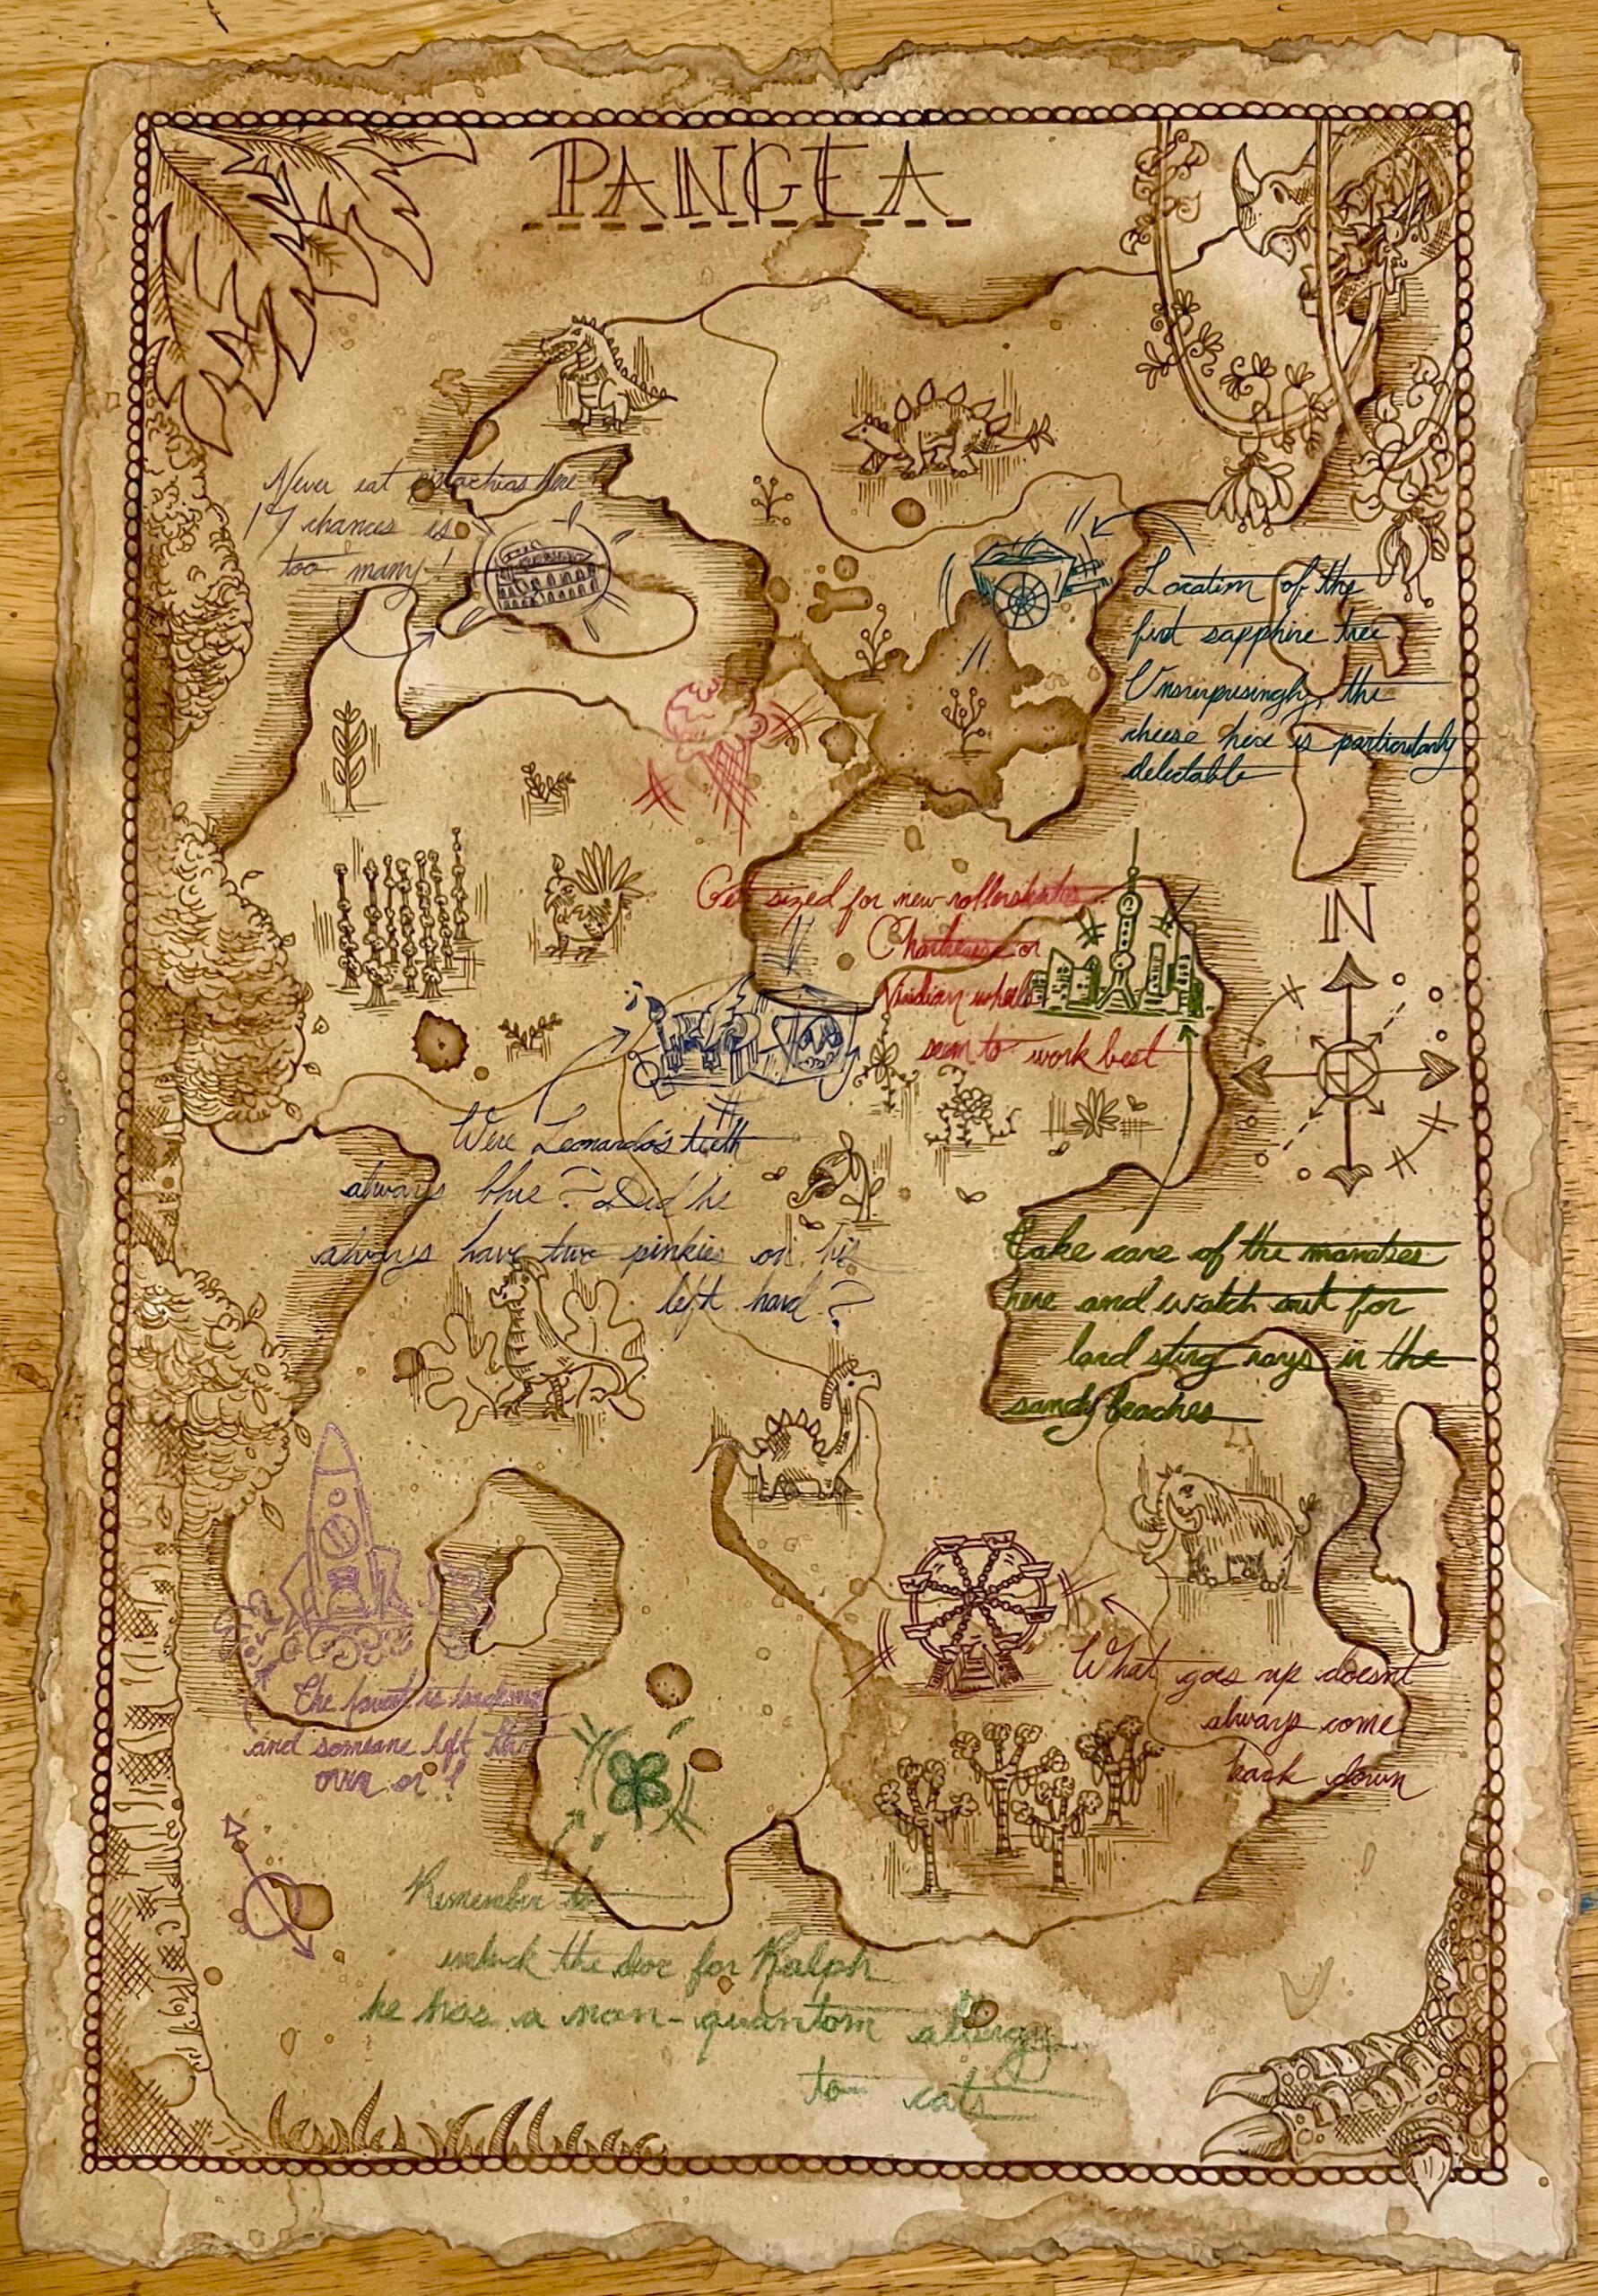 PANGEA
Never eat pistachios here
17 chances is
too many!
Location of the
first sapphire tree
Unsurprisingly, the
cheese here is particularly
delectable
Get sized for new rollerskates
Chartreuse or
Viridian wheels
seem to work best
N
Were Leonardo's teeth
always blue? Did he
always have two pinkies on his
left hand?
Take care of the manatees
here and watch out for
land sting rays in the
sandy beaches
What goes up doesn't
always come
back down
The forest is
and someone left the
oven on!
Remember to
unlock the door for Ralph
he has a non-quantom allergy
to cats